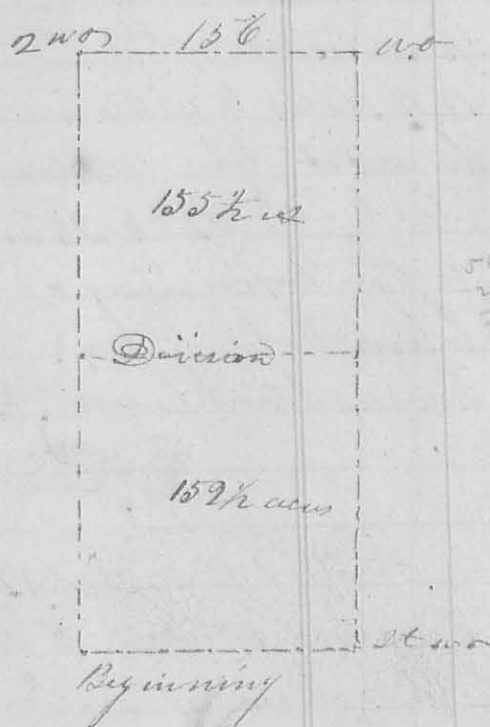 2 wos 156 wo
155 1/2 as
Division
159 1/2 acres
St wo
Beginning